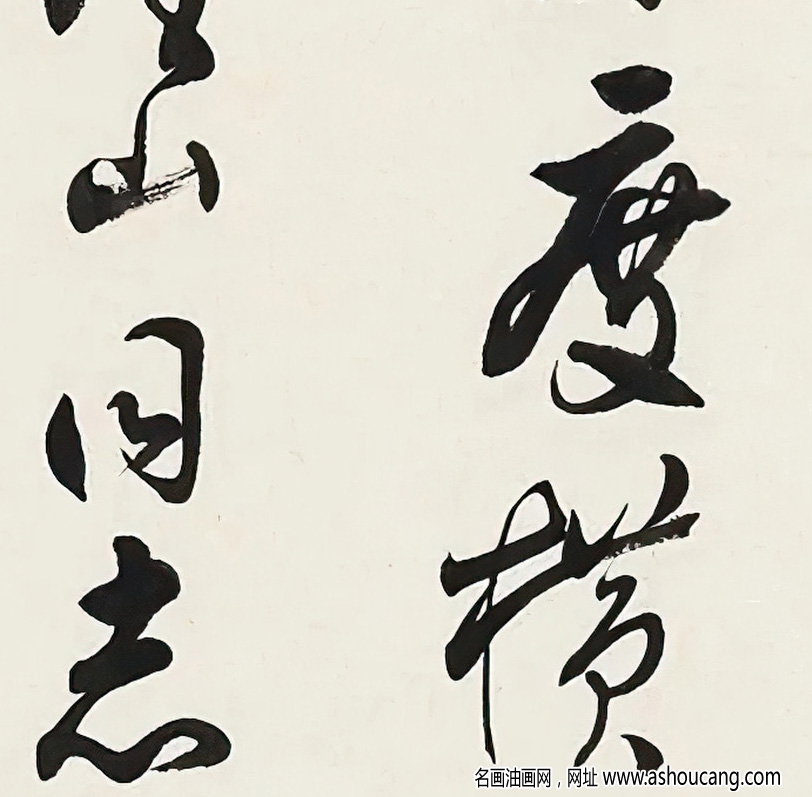 度橫
山同志
名画油画网，网址 www.ashoucang.com